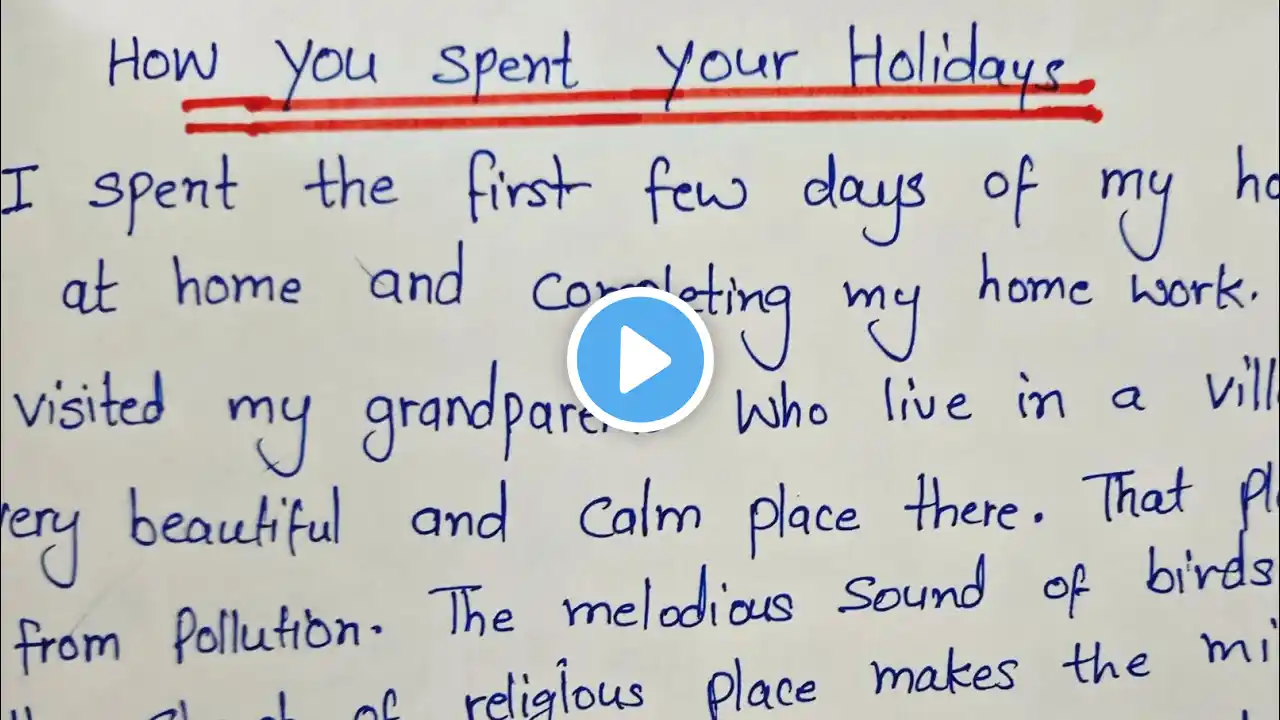 How you spent your Holidays
I spent the first few days of my ho
at home and completing my home work.
visited my grandparents who live in a vill
very beautiful and calm place there. That pl
from Pollution. The melodious sound of birds
of religious place makes the mi